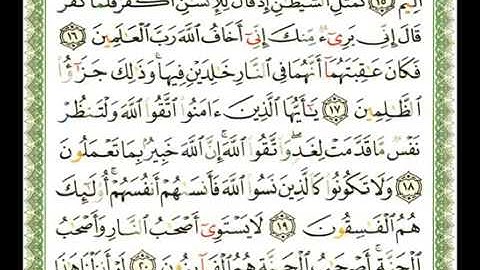 أَلِيمٌ ١٥ كَمَثَلِ ٱلشَّيْطَٰنِ إِذْ قَالَ لِلْإِنسَٰنِ ٱكْفُرْ فَلَمَّا كَفَرَ
قَالَ إِنِّى بَرِىٓءٌ مِّنكَ إِنِّىٓ أَخَافُ ٱللَّهَ رَبَّ ٱلْعَٰلَمِينَ ١٦
فَكَانَ عَٰقِبَتَهُمَآ أَنَّهُمَا فِى ٱلنَّارِ خَٰلِدَيْنِ فِيهَا ۚ وَذَٰلِكَ جَزَٰٓؤُا۟
ٱلظَّٰلِمِينَ ١٧ يَٰٓأَيُّهَا ٱلَّذِينَ ءَامَنُوا۟ ٱتَّقُوا۟ ٱللَّهَ وَلْتَنظُرْ
نَفْسٌ مَّا قَدَّمَتْ لِغَدٍ ۖ وَٱتَّقُوا۟ ٱللَّهَ ۚ إِنَّ ٱللَّهَ خَبِيرٌۢ بِمَا تَعْمَلُونَ
١٨ وَلَا تَكُونُوا۟ كَٱلَّذِينَ نَسُوا۟ ٱللَّهَ فَأَنسَىٰهُمْ أَنفُسَهُمْ ۚ أُو۟لَٰٓئِكَ
هُمُ ٱلْفَٰسِقُونَ ١٩ لَا يَسْتَوِىٓ أَصْحَٰبُ ٱلنَّارِ وَأَصْحَٰبُ
ٱلْجَنَّةِ ۚ أَصْحَٰبُ ٱلْجَنَّةِ هُمُ ٱلْفَآئِزُونَ ٢٠ لَوْ أَنزَلْنَا هَٰذَا